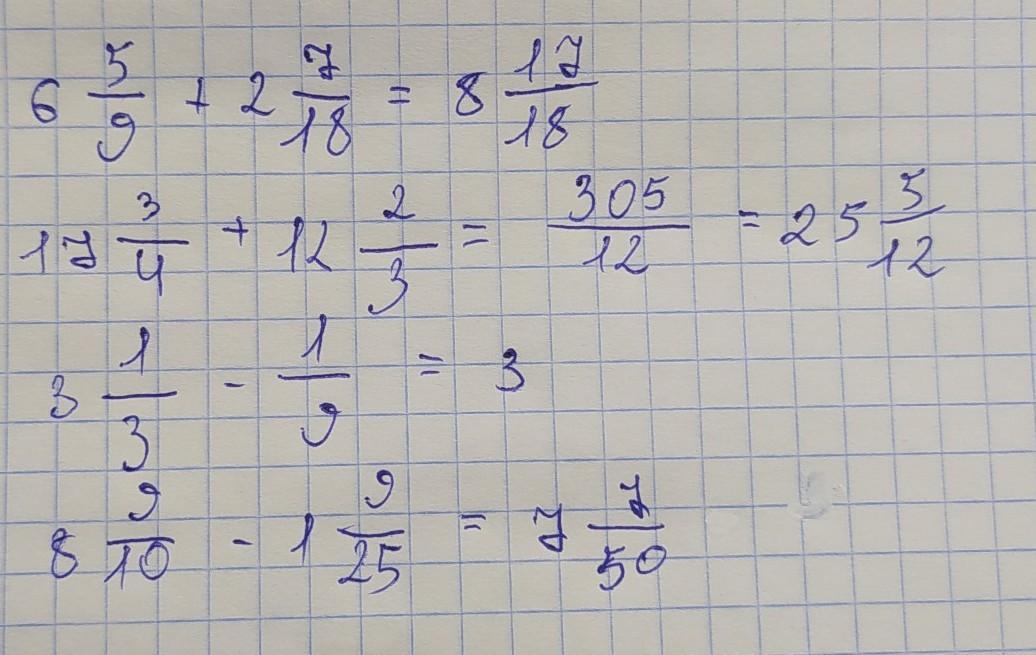 6 5/9 + 2 7/18 = 8 17/18
17 3/4 + 12 2/3 = 305/12 = 25 5/12
3 1/3 - 1/9 = 3
8 9/10 - 1 9/25 = 7 7/50